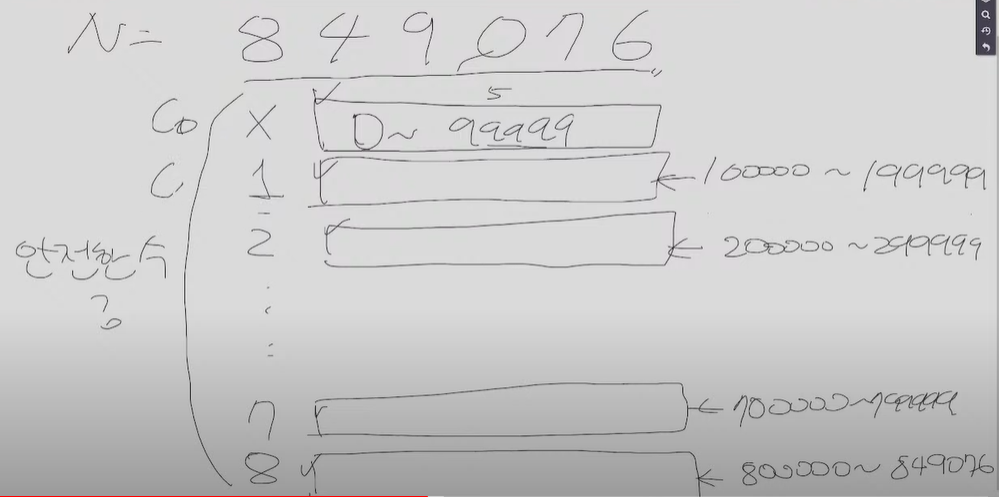 N= 849076
5
C0 X 0~ 99999
C1 1 ← 100000 ~ 199999
2 ← 200000 ~ 299999
안전한 수
?
:
:
7 ← 700000~799999
8 ← 800000~ 849076